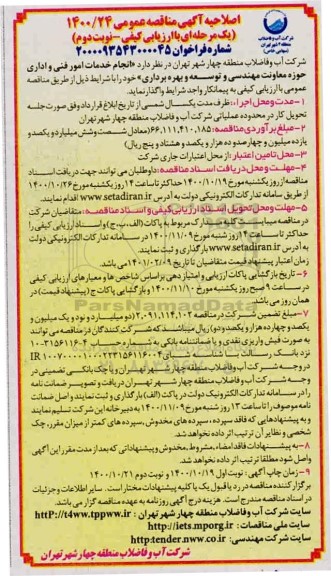 اصلاحیه آگهی مناقصه عمومی ۱۴۰۰/۲۴
(یک مرحله ای با ارزیابی کیفی - نوبت دوم)
شماره فراخوان ۲۰۰۰۰۹۳۵۴۳۰۰۰۰۴۵
شرکت آب و فاضلاب
منطقه ۴ شهر تهران
(سهامی خاص)
شرکت آب وفاضلاب منطقه چهار شهر تهران در نظر دارد «انجام خدمات امور فنی و اداری
حوزه معاونت مهندسی و توسعه و بهره برداری» خود را با شرایط ذیل از طریق مناقصه
عمومی با ارزیابی کیفی به پیمانکار واجد شرایط واگذار نماید.
۱- مدت و محل اجرا: ظرف مدت یکسال شمسی از تاریخ ابلاغ قرارداد وفق صورت جلسه
تحویل کار در محدوده عملیاتی شرکت آب وفاضلاب منطقه چهار شهر تهران
۲- مبلغ برآوردی مناقصه: ۶۶,۱۱۱,۴۱۰,۱۸۵ (معادل شصت وشش میلیارد و یکصد و
یازده میلیون و چهارصد و ده هزار و یکصد و هشتاد و پنج ریال)
۳- محل تامین اعتبار: از محل اعتبارات جاری شرکت
۴- مهلت و محل دریافت اسناد مناقصه: داوطلبان می توانند جهت دریافت اسناد
مناقصه از روز یکشنبه مورخ ۱۴۰۰/۱۰/۱۹ حداکثر تا ساعت ۱۴ روز یکشنبه مورخ ۱۴۰۰/۱۰/۲۶
از طریق سامانه تدارکات الکترونیکی دولت به آدرس www.setadiran.ir اقدام نمایند.
۵- مهلت و محل تحویل اسناد ارزیابی کیفی و اسناد مناقصه: متقاضیان شرکت
در مناقصه میبایست کلیه اسناد مدارک مربوط به پاکات (الف، ب، ج) و اسناد ارزیابی کیفی را
حداکثر تا ساعت ۱۴ روز شنبه مورخ ۱۴۰۰/۱۱/۰۹ در سامانه تدارکات الکترونیکی دولت
به آدرس www.setadiran.ir بارگذاری و ثبت نمایند.
زمان اعتبار پیشنهاد قیمت متقاضیان تا تاریخ ۱۴۰۱/۰۲/۰۹ می باشد.
۶- تاریخ بازگشایی پاکات ارزیابی و امتیاز دهی بر اساس شاخص ها و معیارهای ارزیابی کیفی
در ساعت ۹ صبح روز یکشنبه مورخ ۱۴۰۰/۱۱/۱۰ و بازگشایی پاکات ج (پیشنهاد قیمت) در
همان روز می باشد.
۷- مبلغ تضمین شرکت در مناقصه ۲,۰۹۱,۱۱۴,۱۰۲ (دو میلیارد و نود و یک میلیون و
یکصد و چهارده هزار و یکصد و دو) ریال میباشد که شرکت کنندگان در مناقصه می توانند
به صورت فیش واریزی نقدی و یا ضمانتنامه بانکی به شماره حساب
نزد بانک رسالت با شناسه شبای
در وجه شرکت آب وفاضلاب منطقه چهار شهر تهران و یا چک بانکی تضمینی در
وجه شرکت آب وفاضلاب منطقه چهار شهر تهران دریافت و تصویر ضمانت نامه
را در سامانه تدارکات الکترونیک دولت در پاکت (الف) بارگذاری و ثبت نمایند و اصل ضمانت
نامه موصوف را تا ساعت ۱۴ روز شنبه مورخ ۱۴۰۰/۱۱/۰۹ به دبیرخانه این شرکت تسلیم نمایند
و به پیشنهادهایی که فاقد سپرده، سپرده های مخدوش، سپرده های کمتر از میزان مقرر، چک
شخصی و نظایر آن ترتیب اثر داده نخواهد شد.
۸- به پیشنهادات فاقد امضاء، مشروط، مخدوش و پیشنهاداتی که بعد از مدت مقرر این آگهی
واصل شود مطلقا ترتیب اثر داده نخواهد شد.
۹- زمان چاپ آگهی: نوبت اول ۱۴۰۰/۱۰/۱۹ و نوبت دوم ۱۴۰۰/۱۰/۲۱
برگزار کننده مناقصه در رد یا قبول یک یا کلیه پیشنهادات مختار است. سایر اطلاعات و جزئیات
در اسناد مناقصه مندرج است. هزینه درج آگهی روزنامه به عهده مناقصه گزار می باشد.
سایت شرکت آب وفاضلاب منطقه چهار شهر تهران: http://t4ww.tpww.ir
سایت ملی مناقصات: http://iets.mporg.ir
سایت شرکت مهندسی: http:tender.nww.co.ir
شرکت آب وفاضلاب منطقه چهار شهر تهران